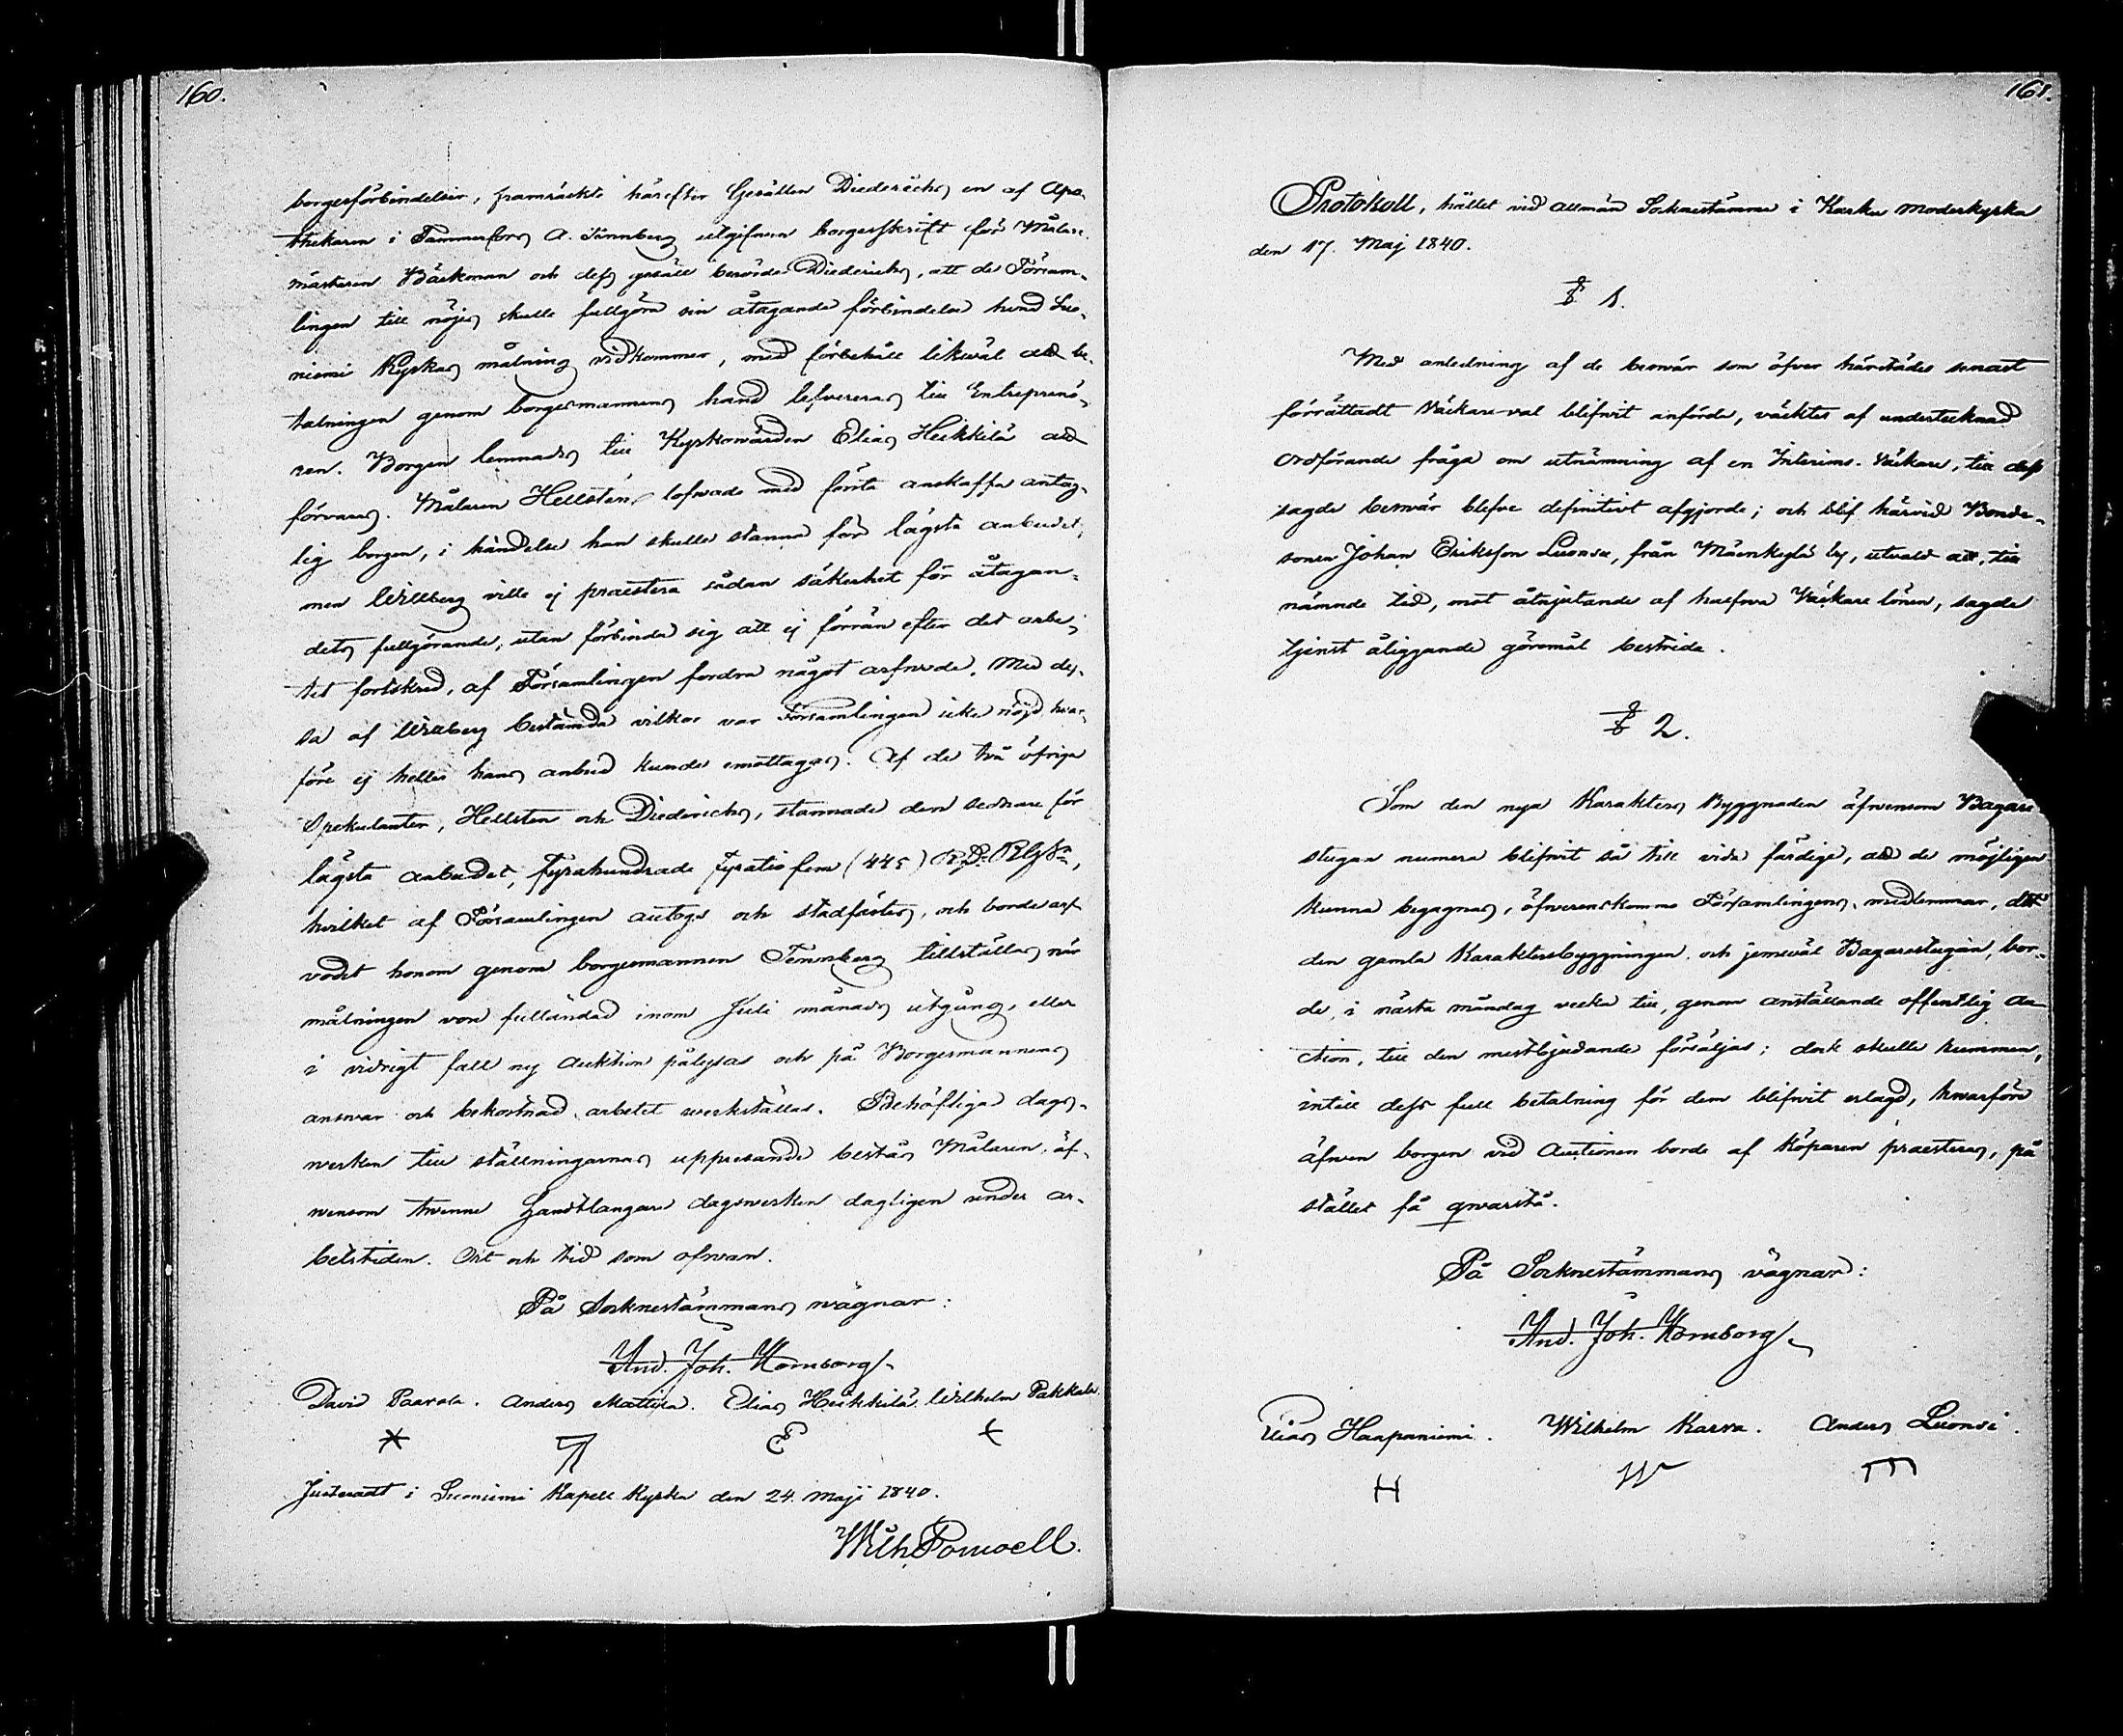 160.
borgesförbindelser, framräckte härefter Gesällen Diederichs en af Apo-
thekaren i Tammerfors A. Tennberg utgifven borgesskrift för Målare-
mästaren Bäckman och dess gesäll berörde Diederichs, att de Försam-
lingen till nöjes skulle fullgöra sin åtagande förbindelse hvad Suo-
niemi Kyrkas målning vidkommer, med förbehåll likwäl att be-
talningen genom borgesmannens hand lefvereras till Entreprenö-
ren. Borgen lemnades till Kyrkowärden Elias Heikkilä att
förvaras. Målaren Hellsten lofvade med första anskaffa antag-
lig borgen, i händelse han skulle stanna för lägsta anbudet,
men Willberg ville ej praestera sådan säkerhet för åtagan-
dets fullgörande, utan förbinda sig att ej förrän efter det arbe-
tet fortskred, af Församlingen fordra något arfvode. Med des-
sa af Willberg bestämda vilkor var Församlingen icke nöjd, hvar-
före ej heller hans anbud kunde emottagas. Af de två öfriga
Spekulanter, Hellsten och Diederichs, stannade den sednare för
lägsta anbudet, Fyrahundrade Fyratio fem (445) R.D. RGSr,
hvilket af Församlingen antogs och stadfästes, och borde arf
vodet honom genom borgesmannen Tennberg tillställas när
målningen vore fulländad inom Juli månads utgång, eller
i vidrigt fall ny auktion pålysas och på Borgesmannens
answar och bekostnad arbetet werkställas. Behöflige dags-
werken till ställningarnas uppresande bestås Målaren, äf-
wensom twenne Handtlangare dagswerken dagligen under ar-
betstiden. Ort och tid som ofvan.
På Socknestämmans wägnar:
And. Joh. Hornborg
David Paavola. Anders Mattila. Elias Heikkilä. Wilhelm Pakkala.
E
Justeradt i Suoniemi Kapell Kyrka den 24 Maji 1840.
Wilh. Poruoell.
161.
Protokoll, hållet vid allmän Socknestämma i Karku Moderkyrka
den 17. Maj 1840.
§ 1.
Med anledning af de besvär som öfver härstädes senast
förrättadt Väckare-val blifvit anförde, väcktes af undertecknad
Ordförande fråga om utnämning af en Interims-Väckare, till dess
sagde besvär blefve definitivt afgjorde; och blef härvid Bonde-
sonen Johan Eriksson Luonsi, från Mäenkylä by, utvald att, till
nämnde tid, mot åtnjutande af halfva Väckare lönen, sagde
tjenst åliggande göromål bestrida.
§ 2.
Som den nya Karakters Byggnaden äfvensom Bagare
stugan numera blifvit så till vida färdige, att de möjligen
kunna begagnas, öfverenskommo Församlingens medlemmar, att
den gamla Karaktersbyggningen och jemväl Bagarestugan, bor-
de, i nästa måndag vecka till, genom anställande offentlig au-
ction, till den mestbjudande försäljas; dock skulle husmmen,
intill dess full betalning för dem blifvit erlagd, hwarföre
äfwen borgen vid Auctionen borde af köparen praesteras, på
stället få qwarstå.
På Socknestämmans vägnar:
And. Joh. Hornborg
Elias Haapaniemi. Wilhelm Karva. Anders Luonsi.
H W